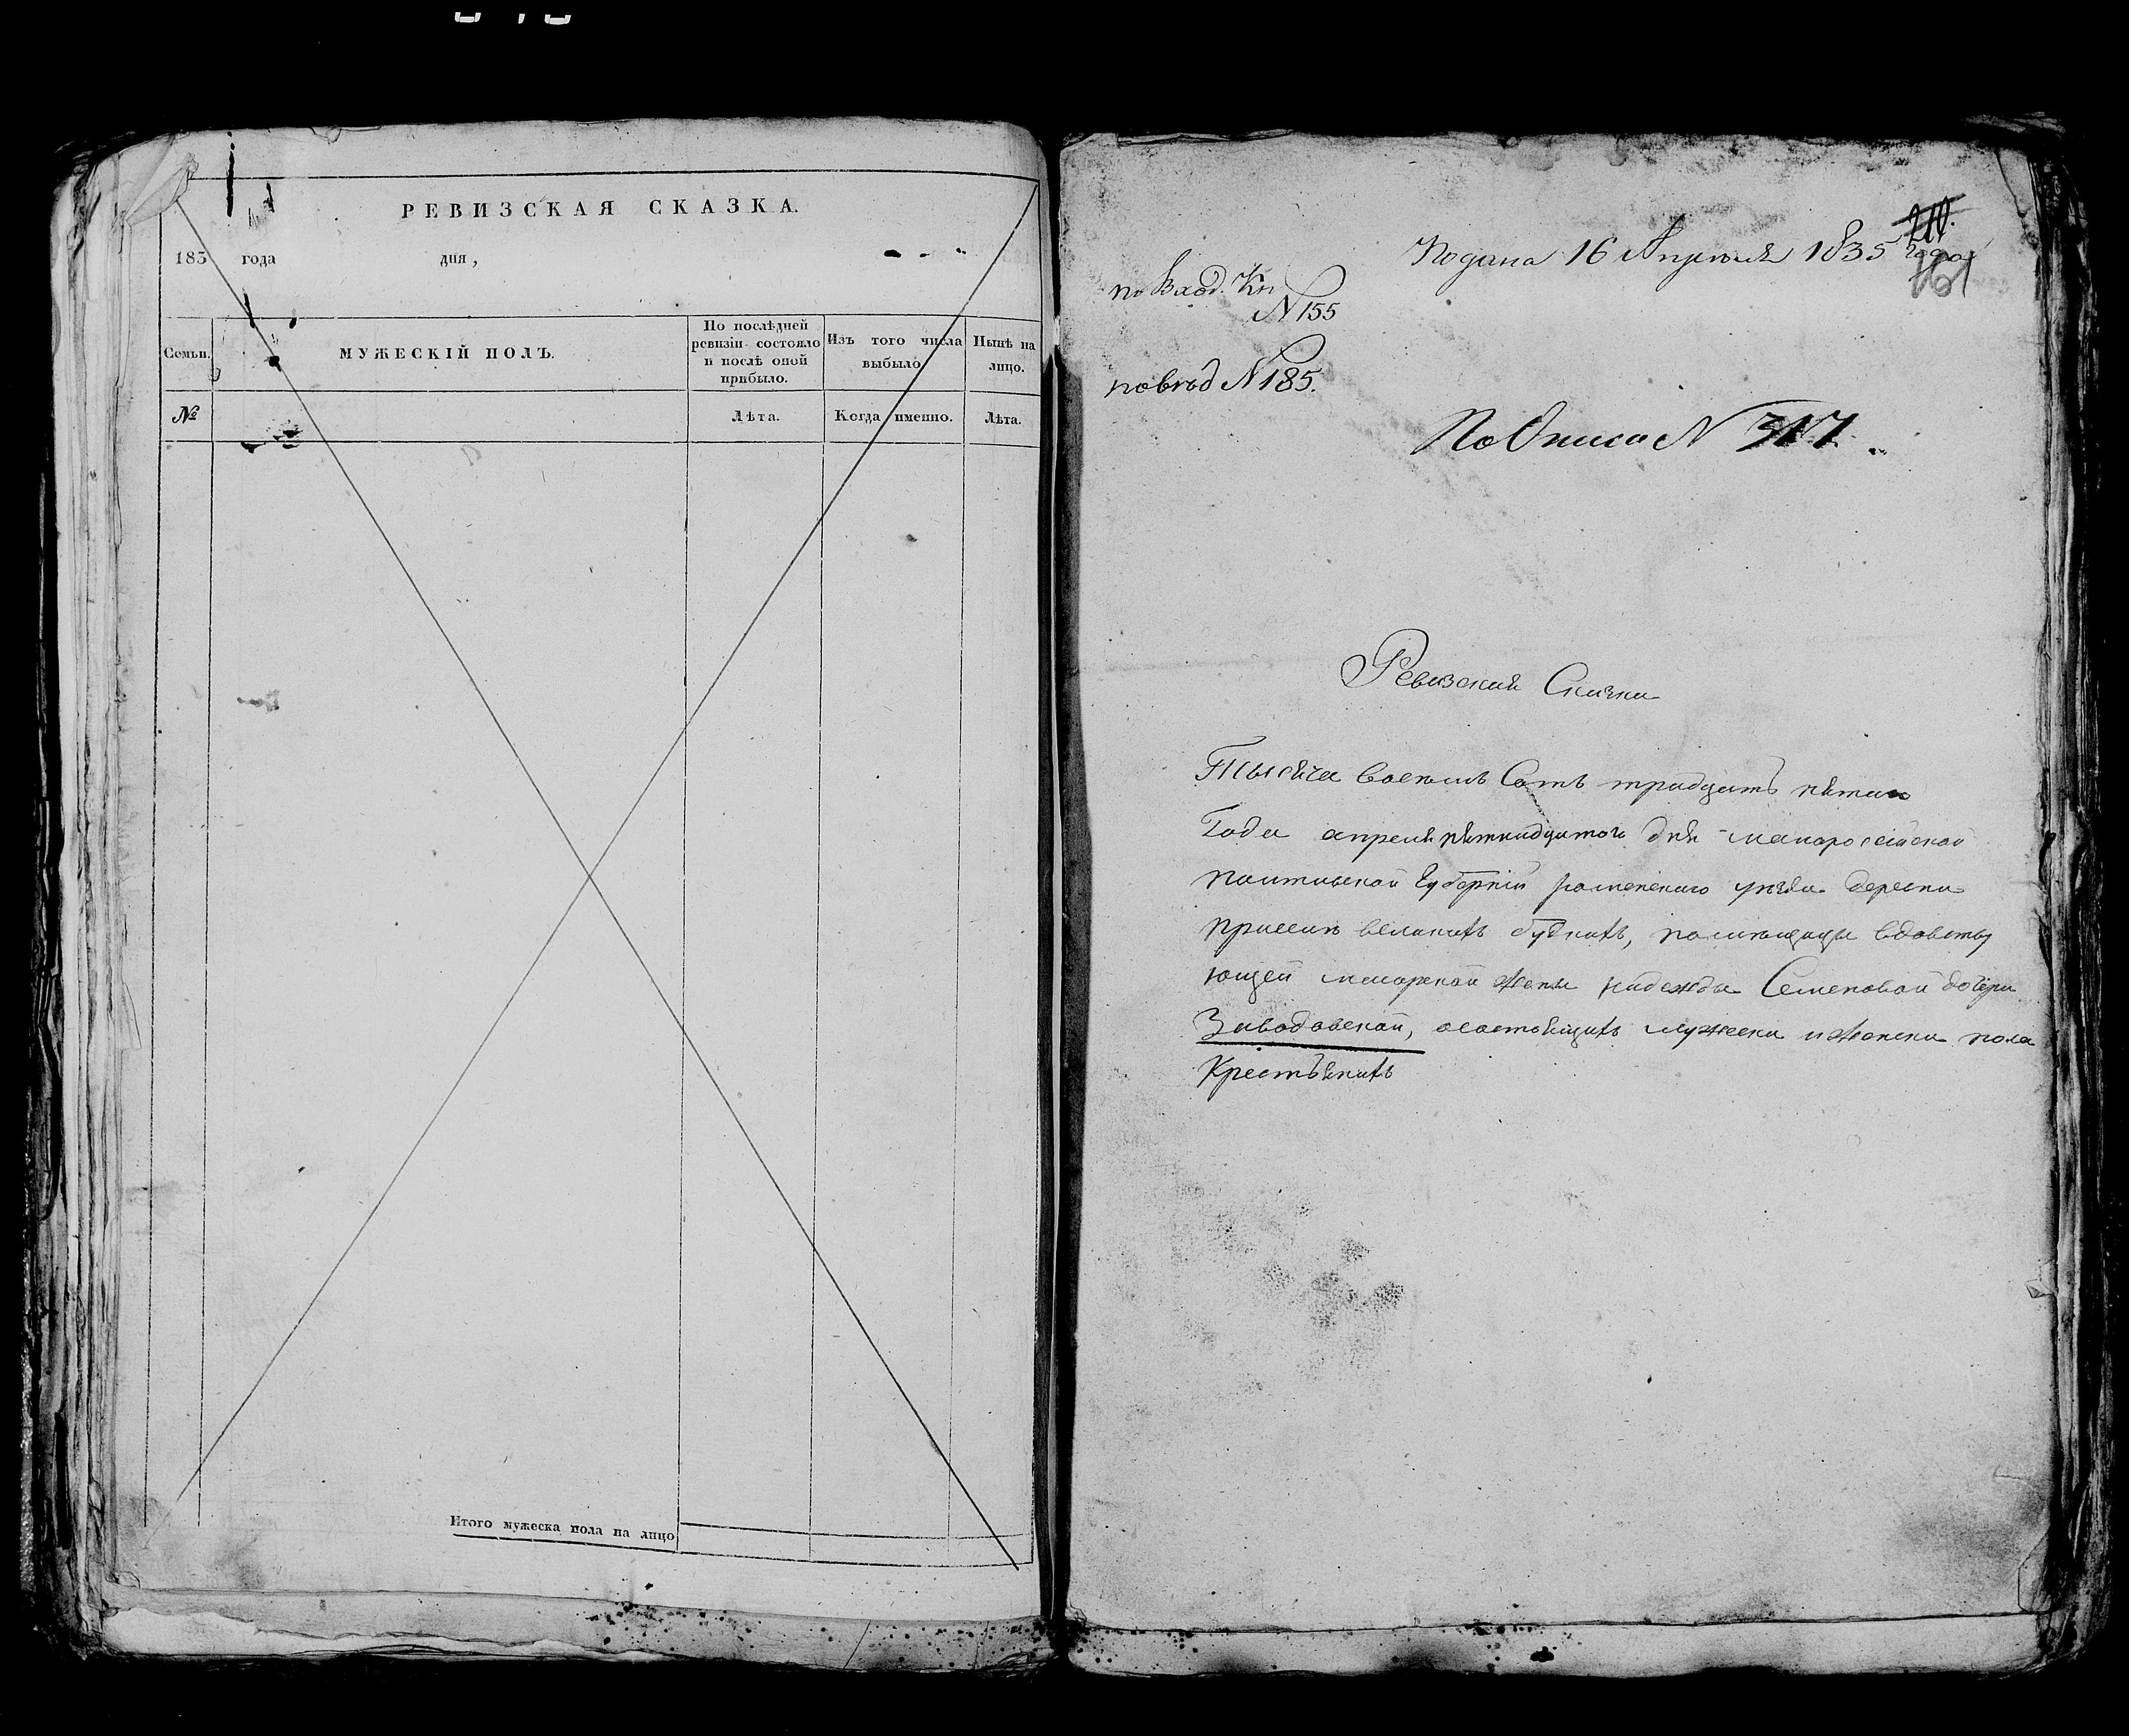 РЕВИЗСКАЯ СКАЗКА.
183 года дня,
Семьи.
МУЖЕСКІЙ ПОЛЪ.
По послѣдней ревизіи состояло и послѣ оной прибыло.
Изъ того числа выбыло
Нынѣ на лицо.
№
Лѣта.
Когда именно.
Лѣта.
Итого мужеска пола на лицо
Подана 16 Апреля 1835 года
161
по Вход. Кн
N 155
N 185.
По Описи N 317.
Ревизския Скаски
Тысяча восемь Сотъ тридцать пятаго
Года апреля пятнадцатого дня малоросейской
полтавской Губерніи роменского уезда деревни
великихъ будкахъ, помещицы вдовству
ющей маиорской жены надежды Семеновой дочери
Заводовской, состоящихъ мужеска и женска пола
Крестьянахъ